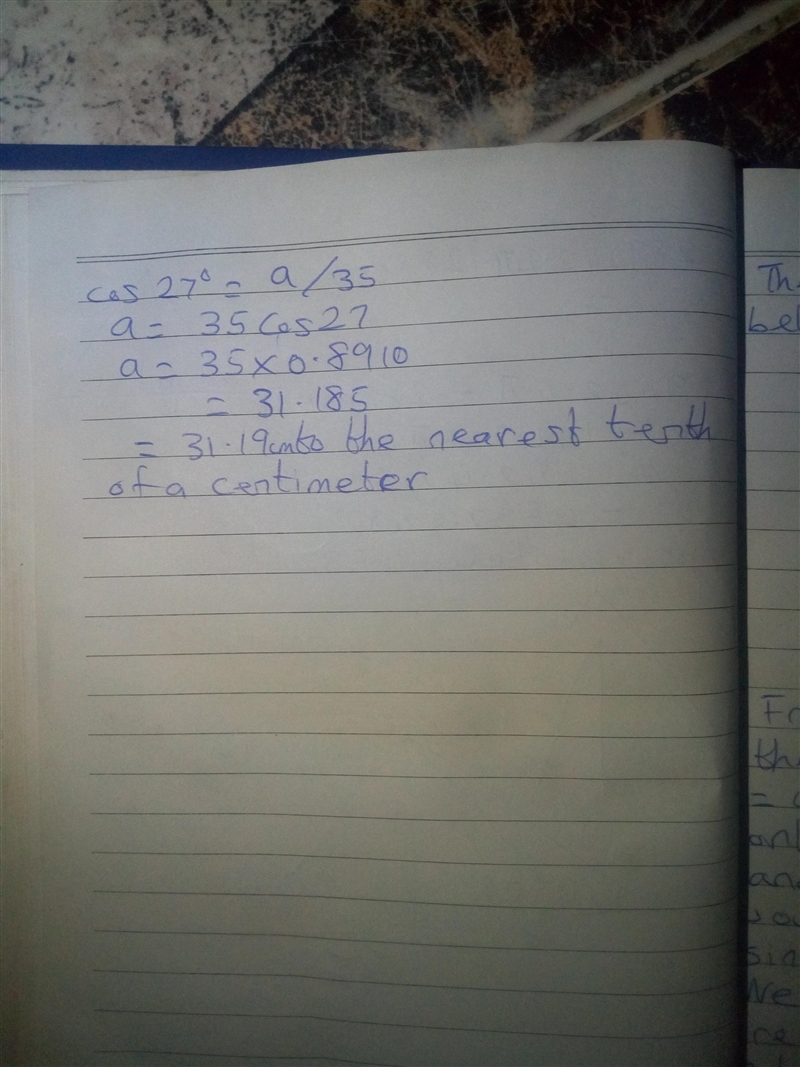 cos 27° = a/35
a = 35 cos 27
a = 35 × 0.8910
= 31.185
= 31.19cm to the nearest tenth
of a centimeter
Th
bel
Fr
th
=
an
and
sin
We
re